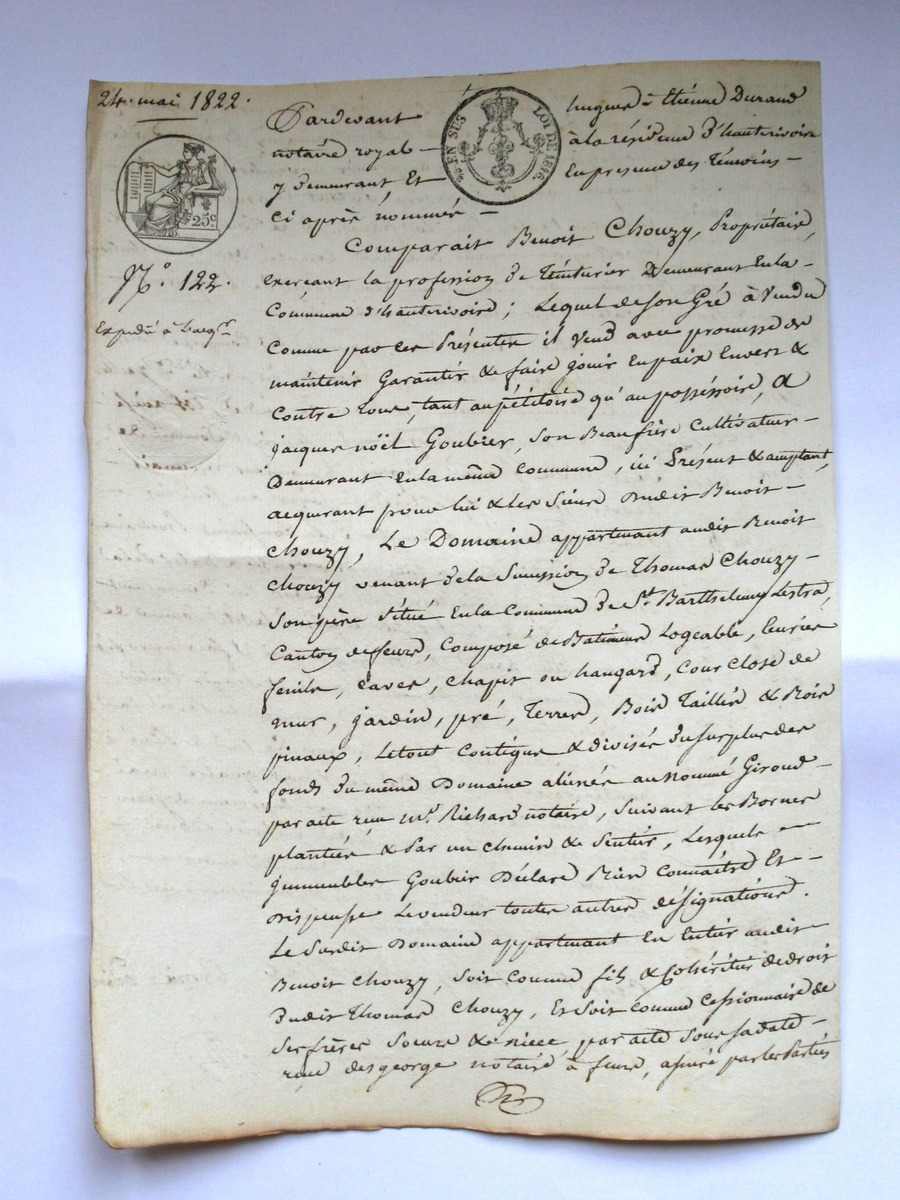 24. mai 1822.
Pardevant hugues Etiénne Durand
notaire royal à la résidence d'hauterivoire
y demeurant Et En presence des Témoins
Ci après nommés
EN SUS LOI DE 1816
25c.
N.o 122.
Expedié à l'acqr.
Comparait Benoit Chouzy, Propriétaire,
exerçant la profession de Teinturier Demeurant En la
Commune d'hauterivoire; Lequel de son Gré à Vendu
Comme par ces Présentes il Vend avec promesse de
maintenir Garantir & faire jouir En paix Envers &
Contre tous, tant au pétitoire qu'au possessoire, à
jacques nöel Goubier, son Beaufrère Cultivateur
Demeurant En la même Commune, ici Présent & acceptant,
acquerant pour lui & les Siens Dudit Benoit
Chouzy, Le Domaine appartenant audit Benoit
Chouzy venant de la Succession de Thomas Chouzy
Son père Situé En la Commune de St. Barthelemy Lestra,
Canton de feurs, Composé de Batiment Logeable, Ecuries
fenils, caves, chapit ou hangard, Cour close de
mur, jardin, pré, Terres, Bois Taillis & Bois
pinaux, Le tout Contigue & divisés du surplus des
fonds du même Domaine aliénés au Nommé Giroud
par acte reçu Me. Richard notaire, suivant les Bornes
plantées & Par un chemin & Sentier, Lesquels
jmmeubles Goubier Déclare Bien Connaitre Et
Dispense Le vendeur toutes autres désignations.
Le Susdit Domaine appartenant En Entier audit
Benoit Chouzy, Soit comme fils & Cohéritier de droit
Dudit Thomas Chouzy, Et Soit comme Cessionnaire de
Ses frères Soeurs & niece par acte Sous Sa date
reçu desgeorge notaire à feurs, assuré par les Parties